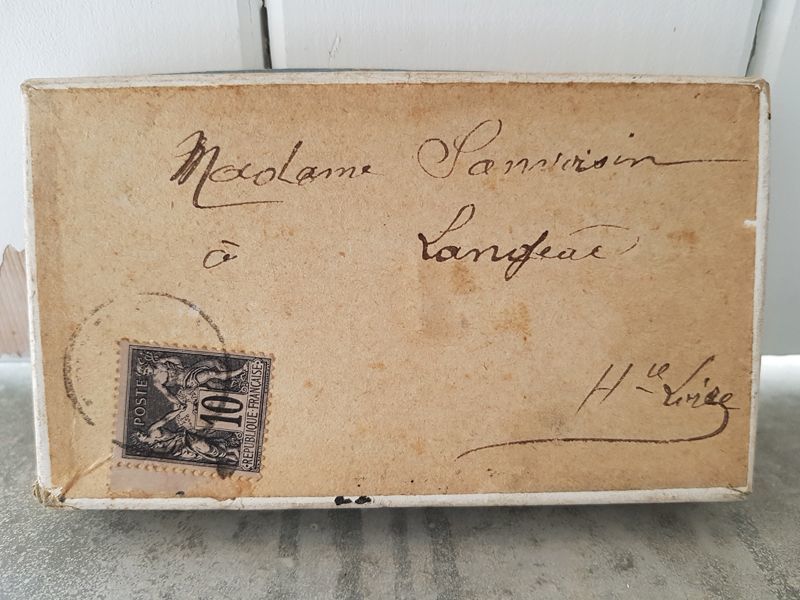 Madame Sanvoisin
à Langeac
Hte Loire
POSTES
10
REPUBLIQUE FRANÇAISE